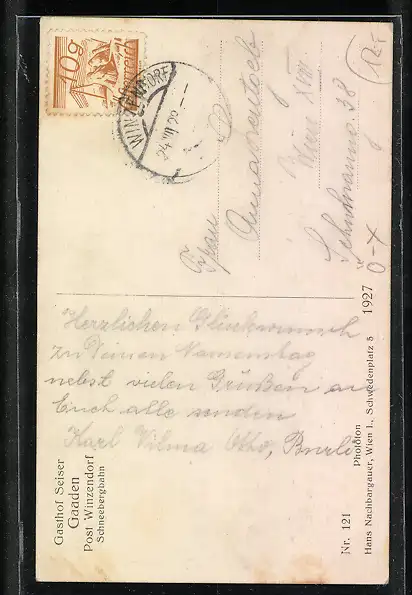 10g
WINZENDORF
24 VIII 29
Frau
Anna
Wien XVIII
38
1927
Herzlichen Glückwunsch
zu Deinen Namenstag
nebst vielen Grüßen an
Euch alle senden
Karl Vilma Otto,
Gasthof Seiser
Gaaden
Post Winzendorf
Schneebergbahn
Nr. 121
Phototon
Hans Nachbargauer, Wien I., Schwedenplatz 5